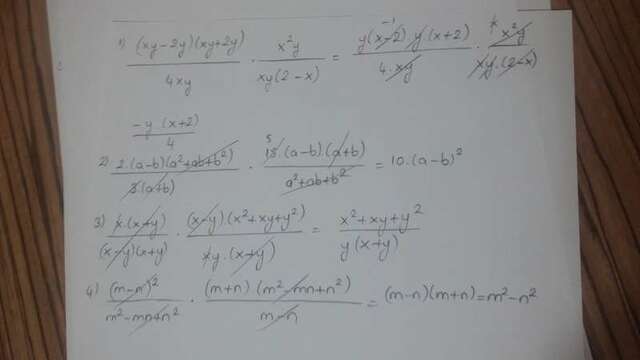 1) (xy-2y)(xy+2y)/4xy · x²y/xy(2-x) = y(x-2) y(x+2)/4·xy · x²y/xy·(2-x)
-y·(x+2)/4
2) 2·(a-b)(a²+ab+b²)/3(a+b) · 15·(a-b)·(a+b)/a²+ab+b² = 10·(a-b)²
3) x·(x+y)/(x-y)(x+y) · (x-y)(x²+xy+y²)/xy·(x+y) = x²+xy+y²/y(x+y)
4) (m-n)²/m²-mn+n² · (m+n)(m²-mn+n²)/m-n = (m-n)(m+n)=m²-n²